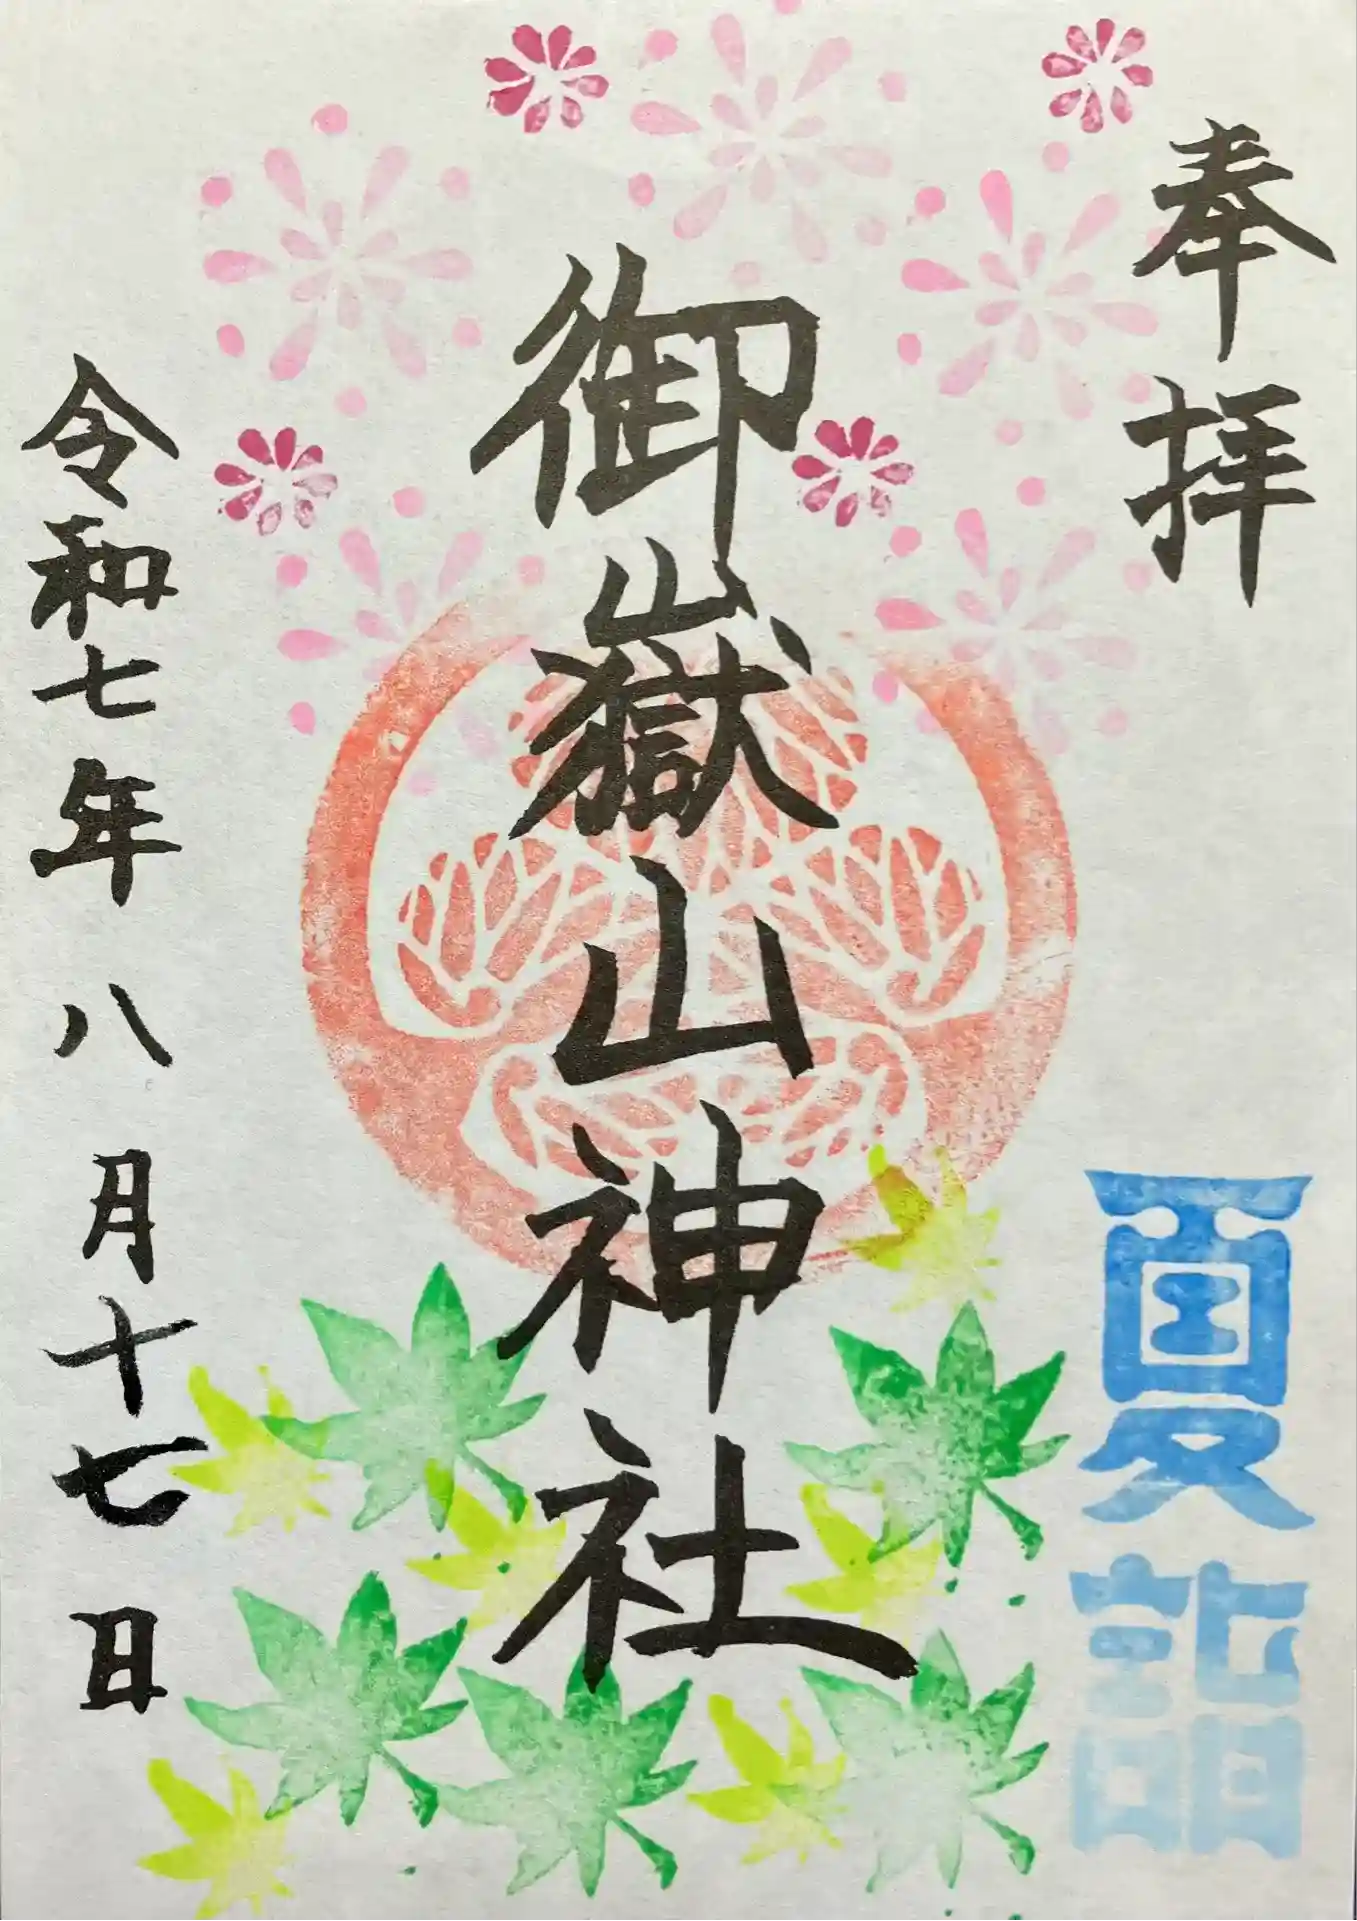 奉拝
夏詣
御嶽山神社
令和七年八月十七日